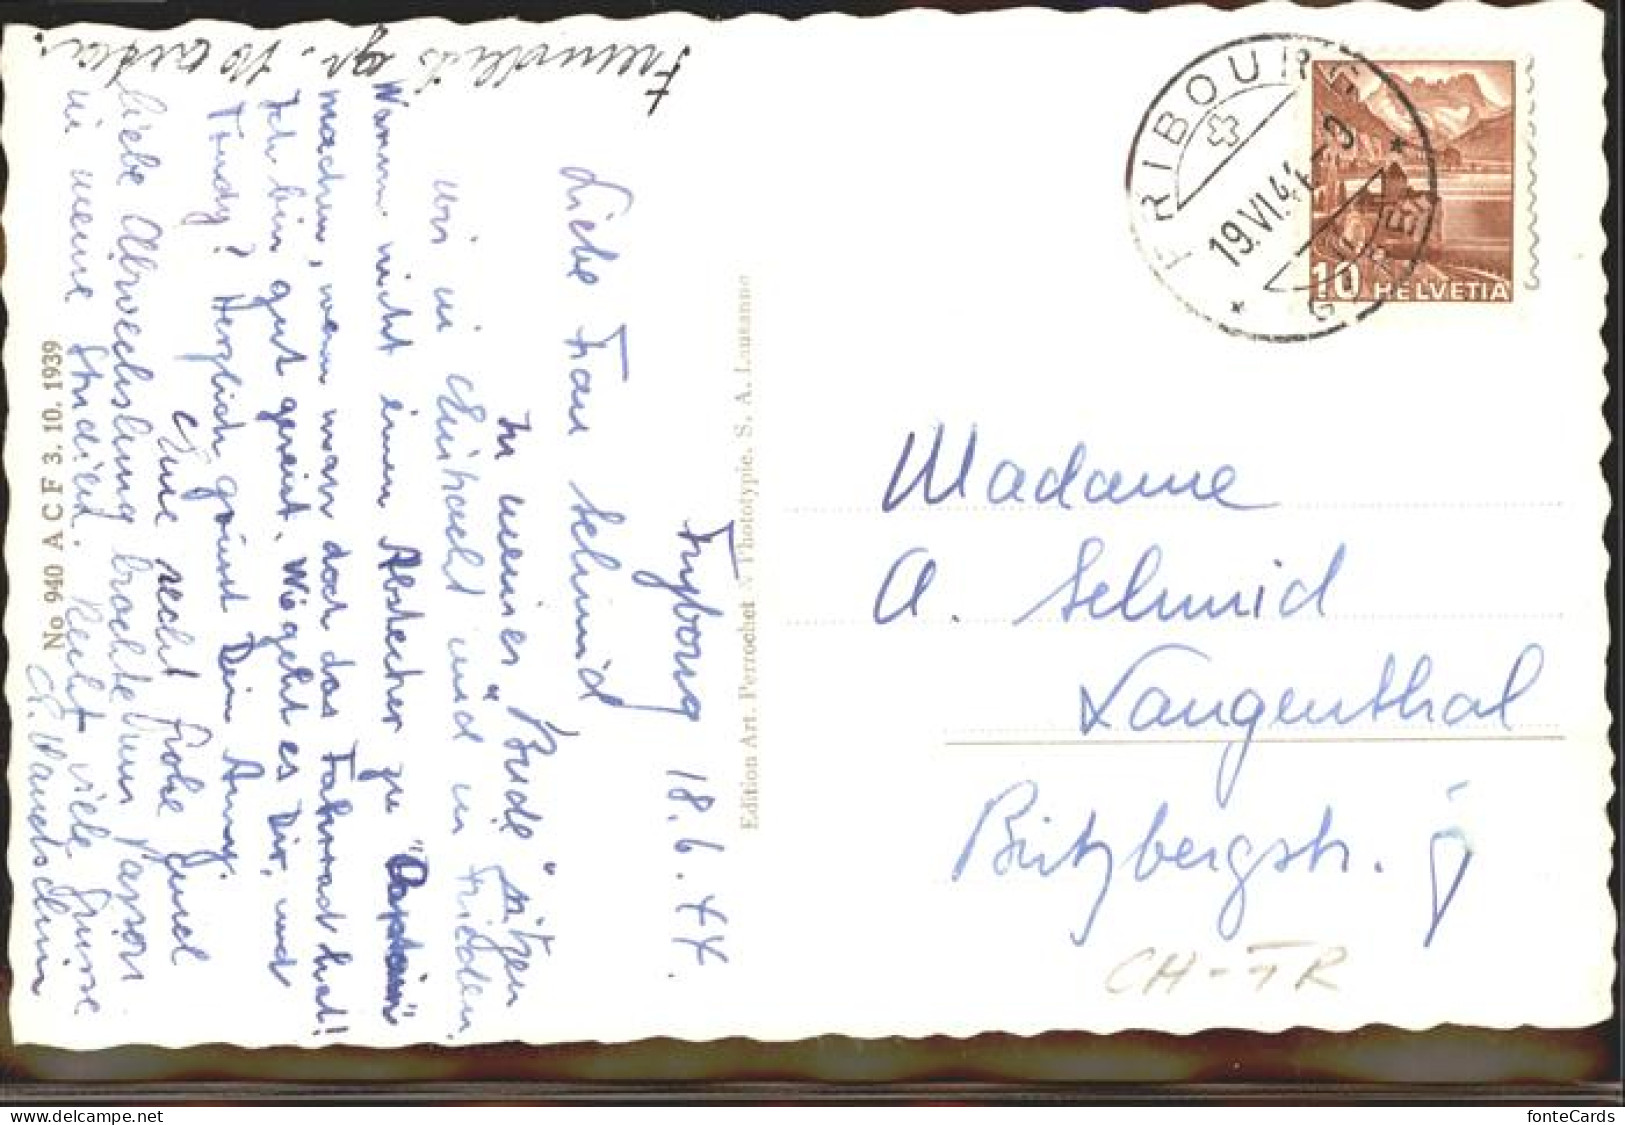 Fryburg 18.6.44.
Liebe Frau Schmid
In meiner "Bude" sitzen
wir in Eintracht und in Frieden.
Warum nicht einen Abstecher zu
machen, wenn man doch das Fahrrad hat!
Ich bin gut gereist. Wie geht es Dir, und
Trudy? Herzlich grüsst Dein Anny.
Eine recht frohe Insel
liebe Abwechslung brachte
in meine Studien. Recht viele Grüsse
Freundlich gr.
No 940 A C F 3. 10. 1939
Edition Art. Perrochet Phototypie. S. A. Lausanne
FRIBOURG
19.VI.44
10 HELVETIA
Madame
A. Schmid
Langenthal
Bützbergstr. 9
CH-FR
fonteCards
www.delcampe.net